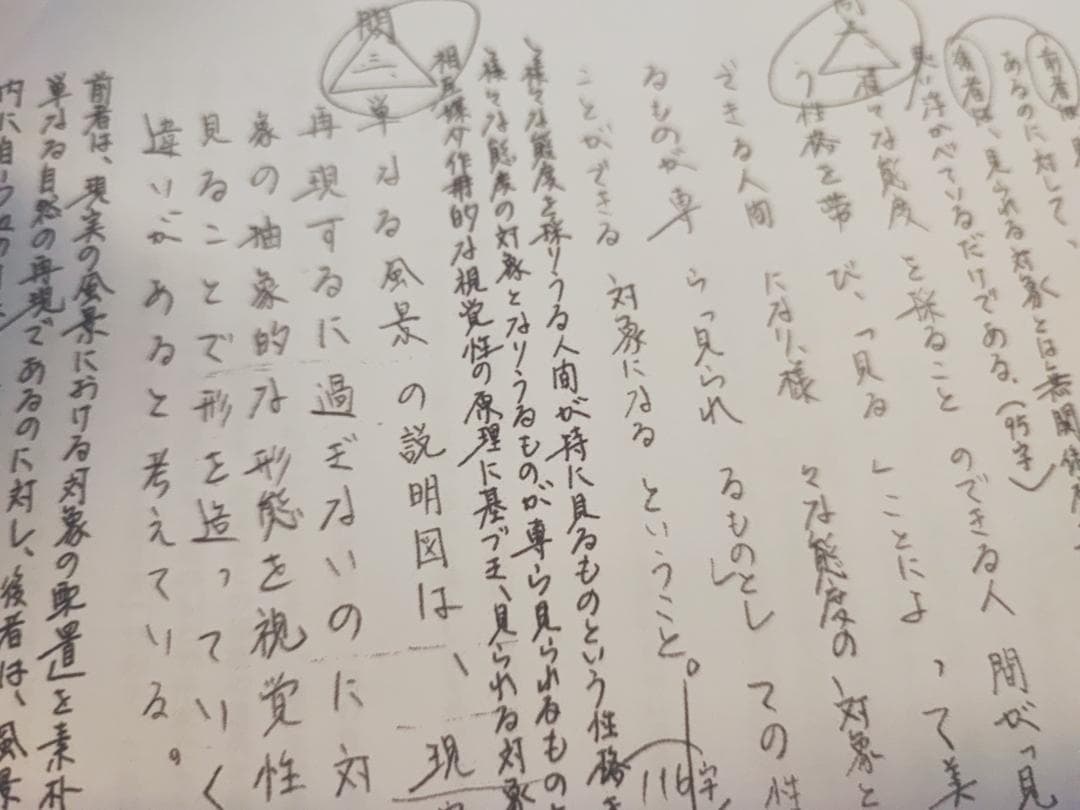 前者は見
あるのに対して、
後者は、見られる対象とは無関係な
思い浮かべているだけである。(95字)
問
様々な態度を採ることのできる人間が「見
う性格を帯び、「見る」ことによって美
できる人間になり、様々な態度の対象と
るものが専ら「見られるものとしての性
ことができる対象になるということ。
116字
様々な態度を採りうる人間が特に見るものという性格を
様々な態度の対象となりうるものが専ら見られるものと
相互媒介作用的な視覚性の原理に基づき、見られる対象
問三、
単なる風景の説明図は、現
再現するに過ぎないのに対
象の抽象的な形態を視覚性
見ることで形を造っていく
違いがあると考えている。
前者は、現実の風景における対象の配置を素朴
単なる自然の再現であるのに対し、後者は、風景
内に自